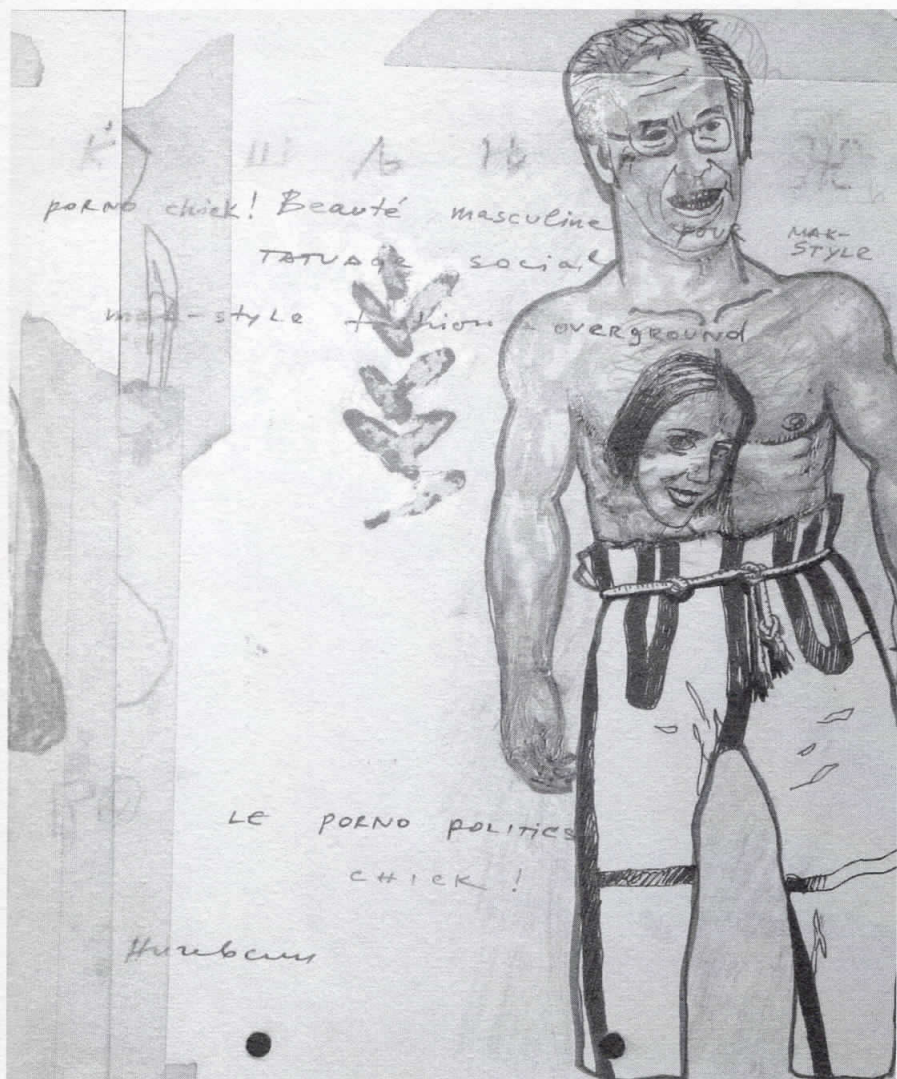 PORNO chick! Beauté masculine
POUR MAK-
STYLE
TATUAGE social
mak-style fashion - OVERGROUND
LE PORNO POLITICS
CHICK !